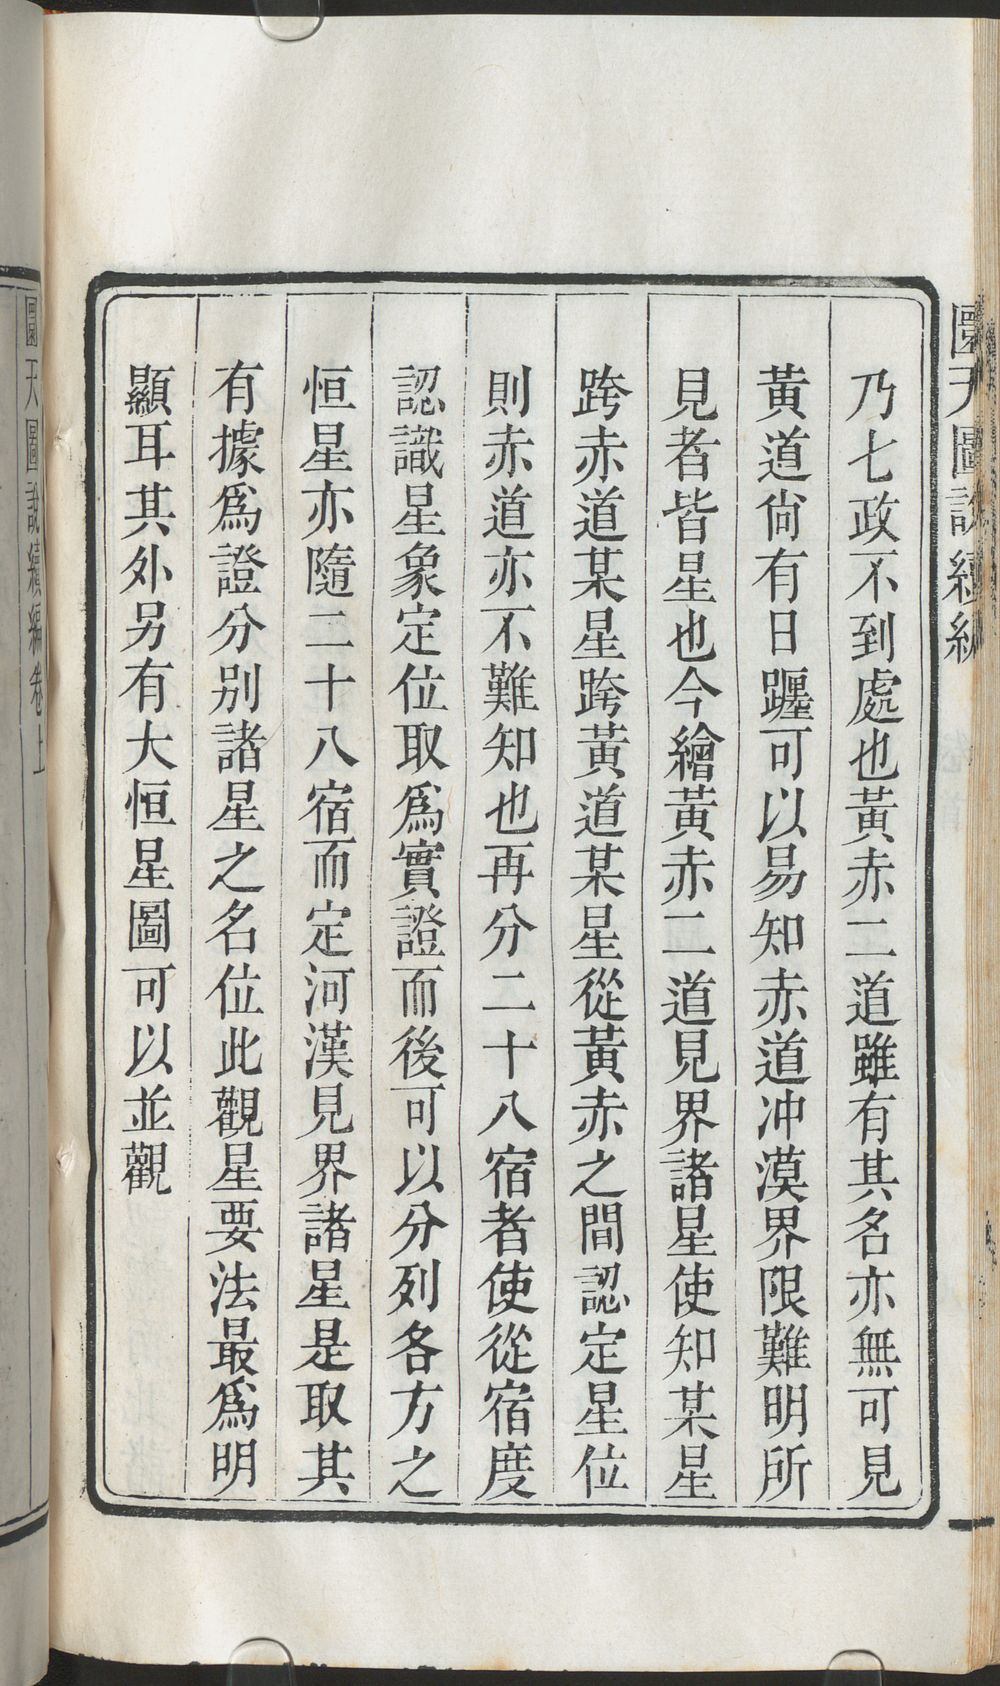 圜天圖說續編
乃七政不到處也黃赤二道雖有其名亦無可見
黃道尙有日躔可以易知赤道冲漠界限難明所
見者皆星也今繪黃赤二道見界諸星使知某星
跨赤道某星跨黃道某星從黃赤之間認定星位
則赤道亦不難知也再分二十八宿者使從宿度
認識星象定位取爲實證而後可以分列各方之
恒星亦隨二十八宿而定河漢見界諸星是取其
有據爲證分別諸星之名位此觀星要法最爲明
顯耳其外另有大恒星圖可以並觀
圜天圖說續編卷上